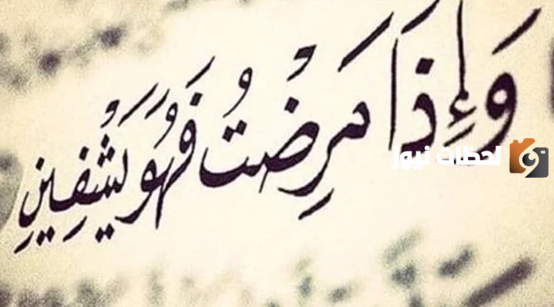 وَإِذَا مَرِضْتُ فَهُوَ يَشْفِينِ
لحظات نيوز